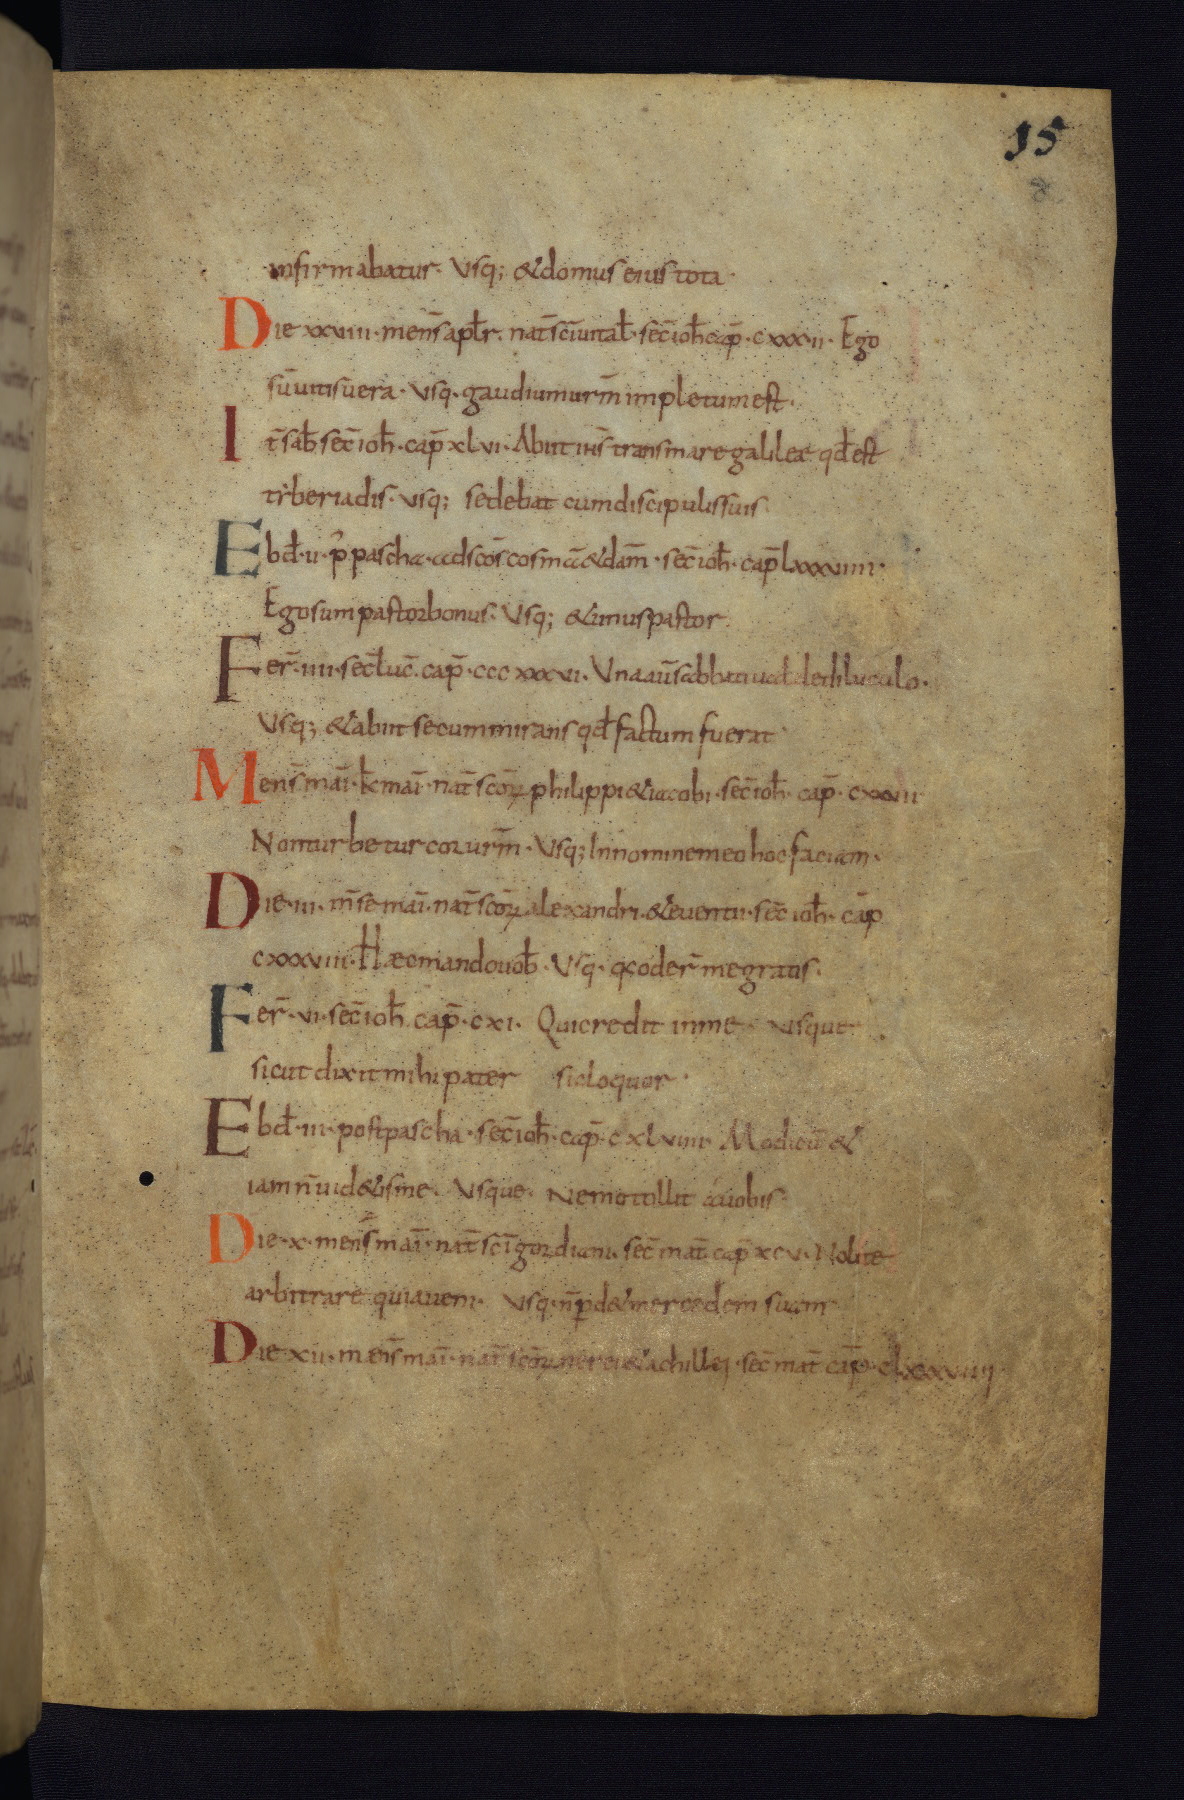 15
infirmabatur. Vsq; & domus eius tota.
Die xxviii. mens̄ apƚr. nat̄ sc̄i uitaƚ. sec̄ ioh̄ cap̄. cxxxii. Ego
sū uitis uera. Vsq. gaudium ur̄m impletum est.
It̄ sab̄ sec̄ ioh̄. cap̄ xlvi. Abiit ih̄s trans mare galileae qd̄ est
tyberiadis. Vsq; sedebat cum discipulis suis.
Ebd̄. ii. p̄ pascha. ad sc̄os cosmā & dam̄. sec̄ ioh̄. cap̄ lxxxviiii.
Ego sum pastor bonus. Vsq; & unus pastor.
Fer̄. iiii. sec̄ luc̄. cap̄. cccxxxvi. Una aū sabbati ualde diluculo.
Vsq; & abiit secum mirans qd̄ factum fuerat.
Mens̄ mai. k̄ mai. nat̄ sc̄oꝝ philippi & iacobi. sec̄ ioh̄. cap̄. cxxviii
Non turbetur cor ur̄m. Vsq; In nomine meo hoc faciam.
Die. iii. m̄se mai. nat̄ sc̄oꝝ alexandri. & euentii. sec̄ ioh̄. cap̄
cxxxviii. Haec mando uob̄. Vsq. q̄ oder̄ me gratis.
Fer̄. vi. sec̄ ioh̄. cap̄. cxi. Qui credit in me usque
sicut dixit mihi pater sic loquor.
Ebd̄. iii. post pascha. sec̄ ioh̄. cap̄. cxlviiii. Modicū &
iam n̄ uid&is me. Vsque. Nemo tollit a uobis.
Die. x. mens̄ mai. nat̄ sc̄i gordiani. sec̄ mat̄ cap̄ xcv. Nolite
arbitrare quia ueni. Vsq. n̄ ꝑd& mercedem suam
Die xii. mens̄ mai. nat̄ sc̄oꝝ nerei & achillei. sec̄ mat̄ cap̄. clxxxviiii